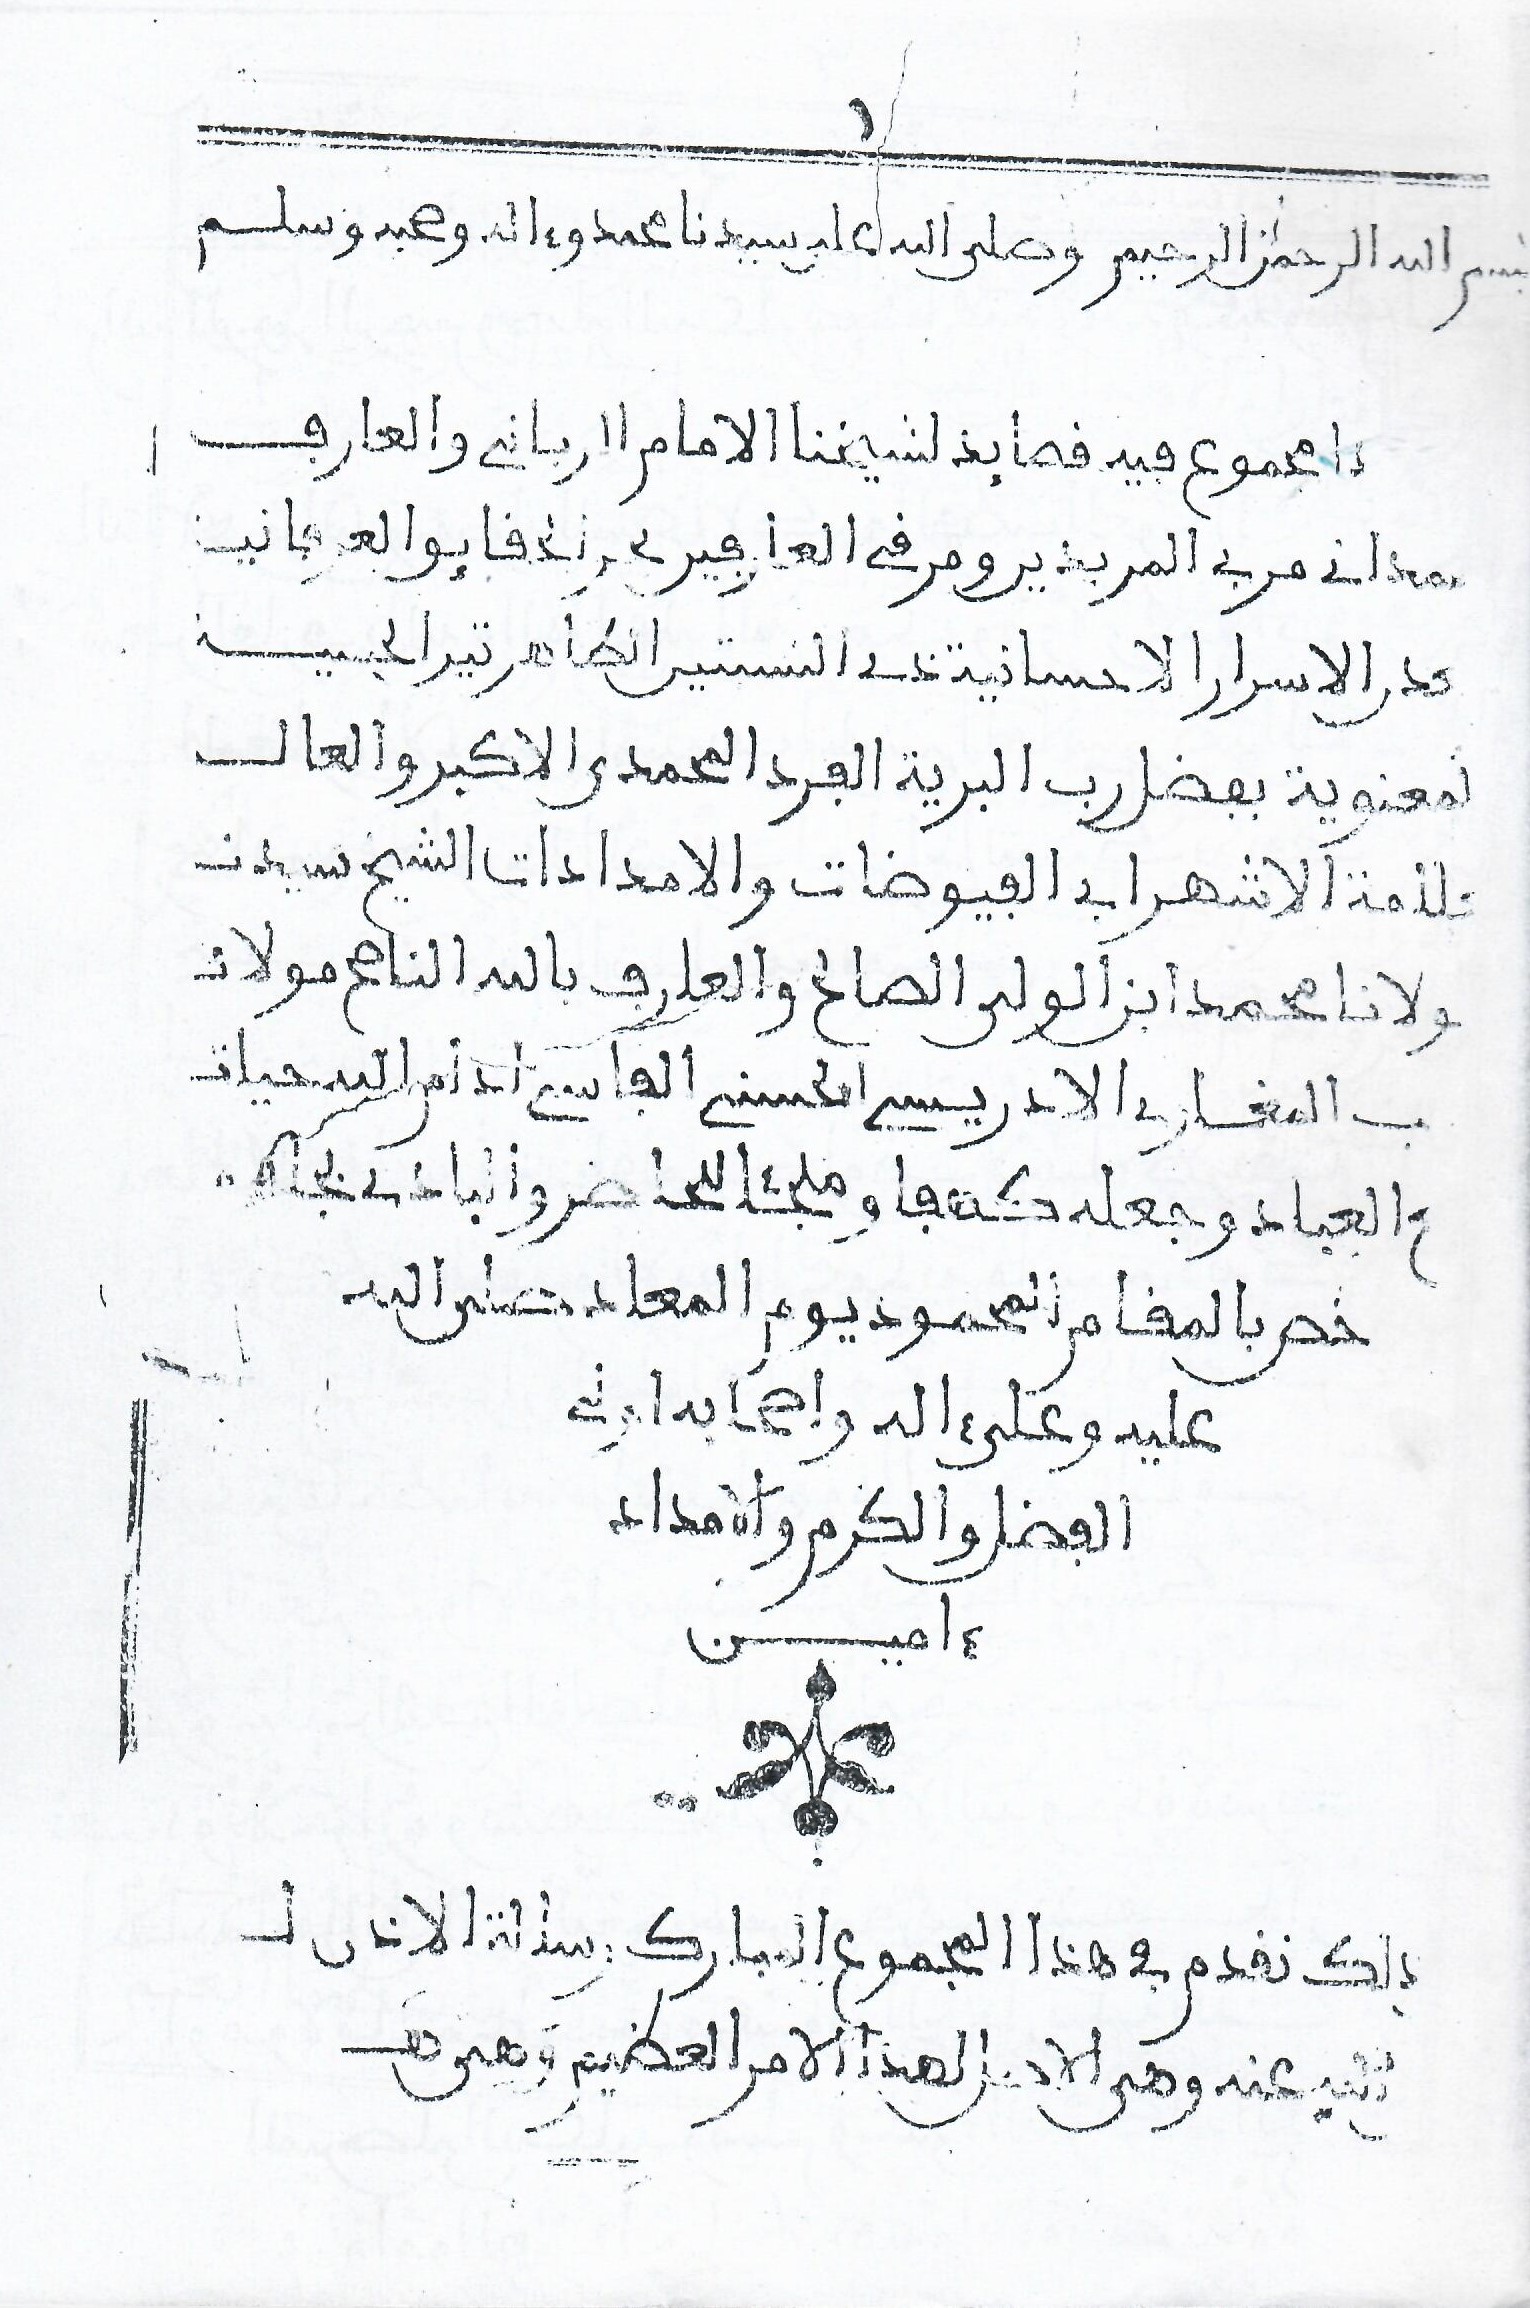 ١
بسم الله الرحمن الرحيم وصلى الله على سيدنا محمد وءاله وصحبه وسلم
ذا مجموع فيه قصايد لشيخنا الامام الرباني والعارف
مربي المريدين ومرقي العارفين الحقايق العرفانية
الاسرار الاحسانية ذي النسبتين الطاهرتين الحسية
لمعنوية بفضل رب البرية الفرد المحمدي الاكبر والعالـ
علامة الاشهر ابي الفيوضات والامدادات الشيخ سيدنـ
ولانا محمد ابن الولي الصالح والعارف بالله الناصح مولانـ
الادريسي الحسني الفاسي ادام الله حياتـ
ع العباد وجعله كهفا وملجئا للحاضر والبادي بجاه
خص بالمقام المحمود يوم المعاد صلى الله
عليه وعلى ءاله واصحابه اولي
الفضل والكرم والامداد
ءاميـــن
ذلك نقدم في هذا المجموع المبارك رسالة الاذن لـ
عنه وهي الاذن لهذا الامر العظيم وهي هـ